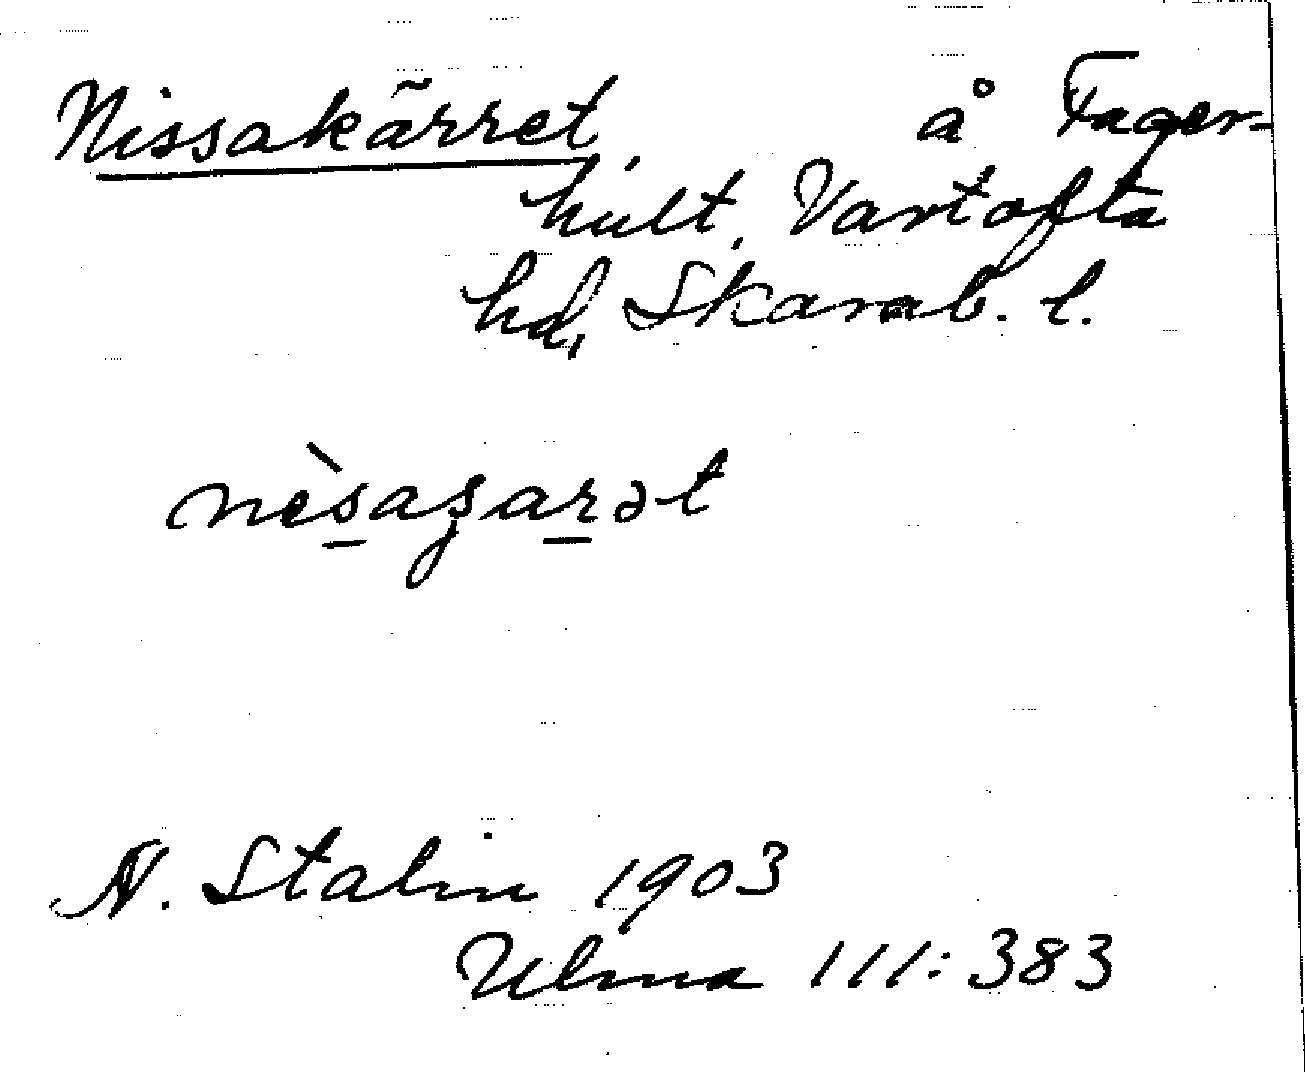 Nissakärret, å Fager-
hult, Vartofta
hd, Skarab. l.
nèsaʂarət
N. Stalin 1903
Ulma 111:383